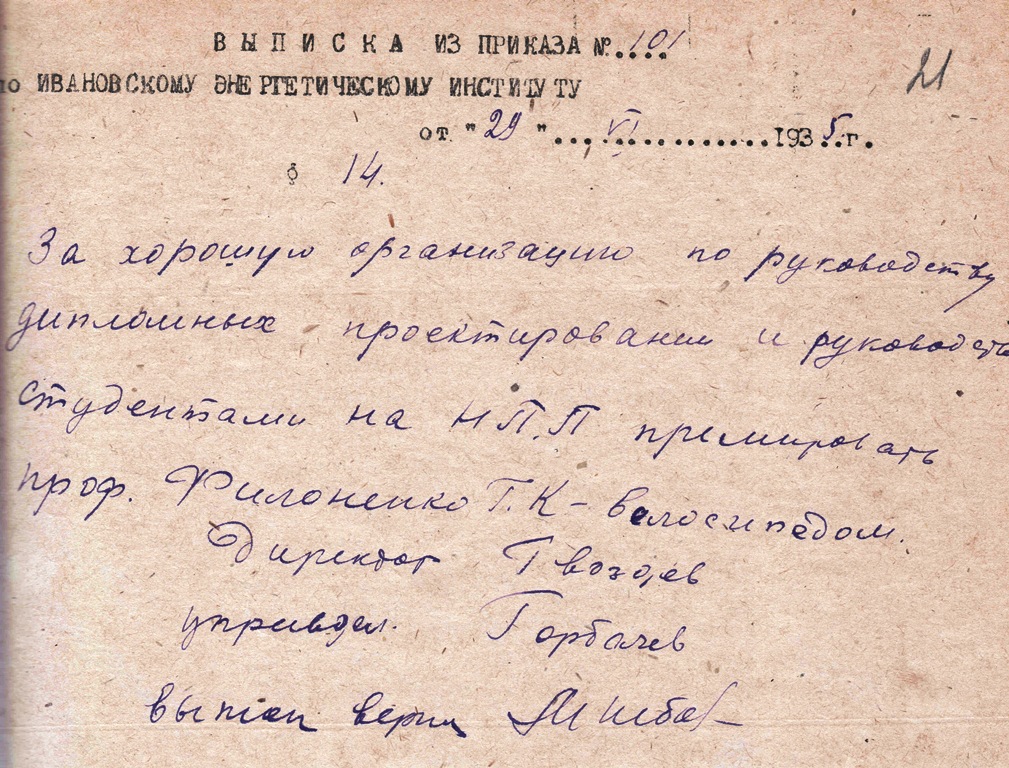 ВЫПИСКА ИЗ ПРИКАЗА №.101
21
по ИВАНОВСКОМУ ЭНЕРГЕТИЧЕСКОМУ ИНСТИТУТУ
от "29"....VI..............1935.г.
§ 14.
За хорошую организацию по руководству
дипломных проектировании и руководств
студентами на НПП премировать
проф. Филоненко Г.К – велосипедом.
Директор Гвоздев
управдел. Горбачев
верна